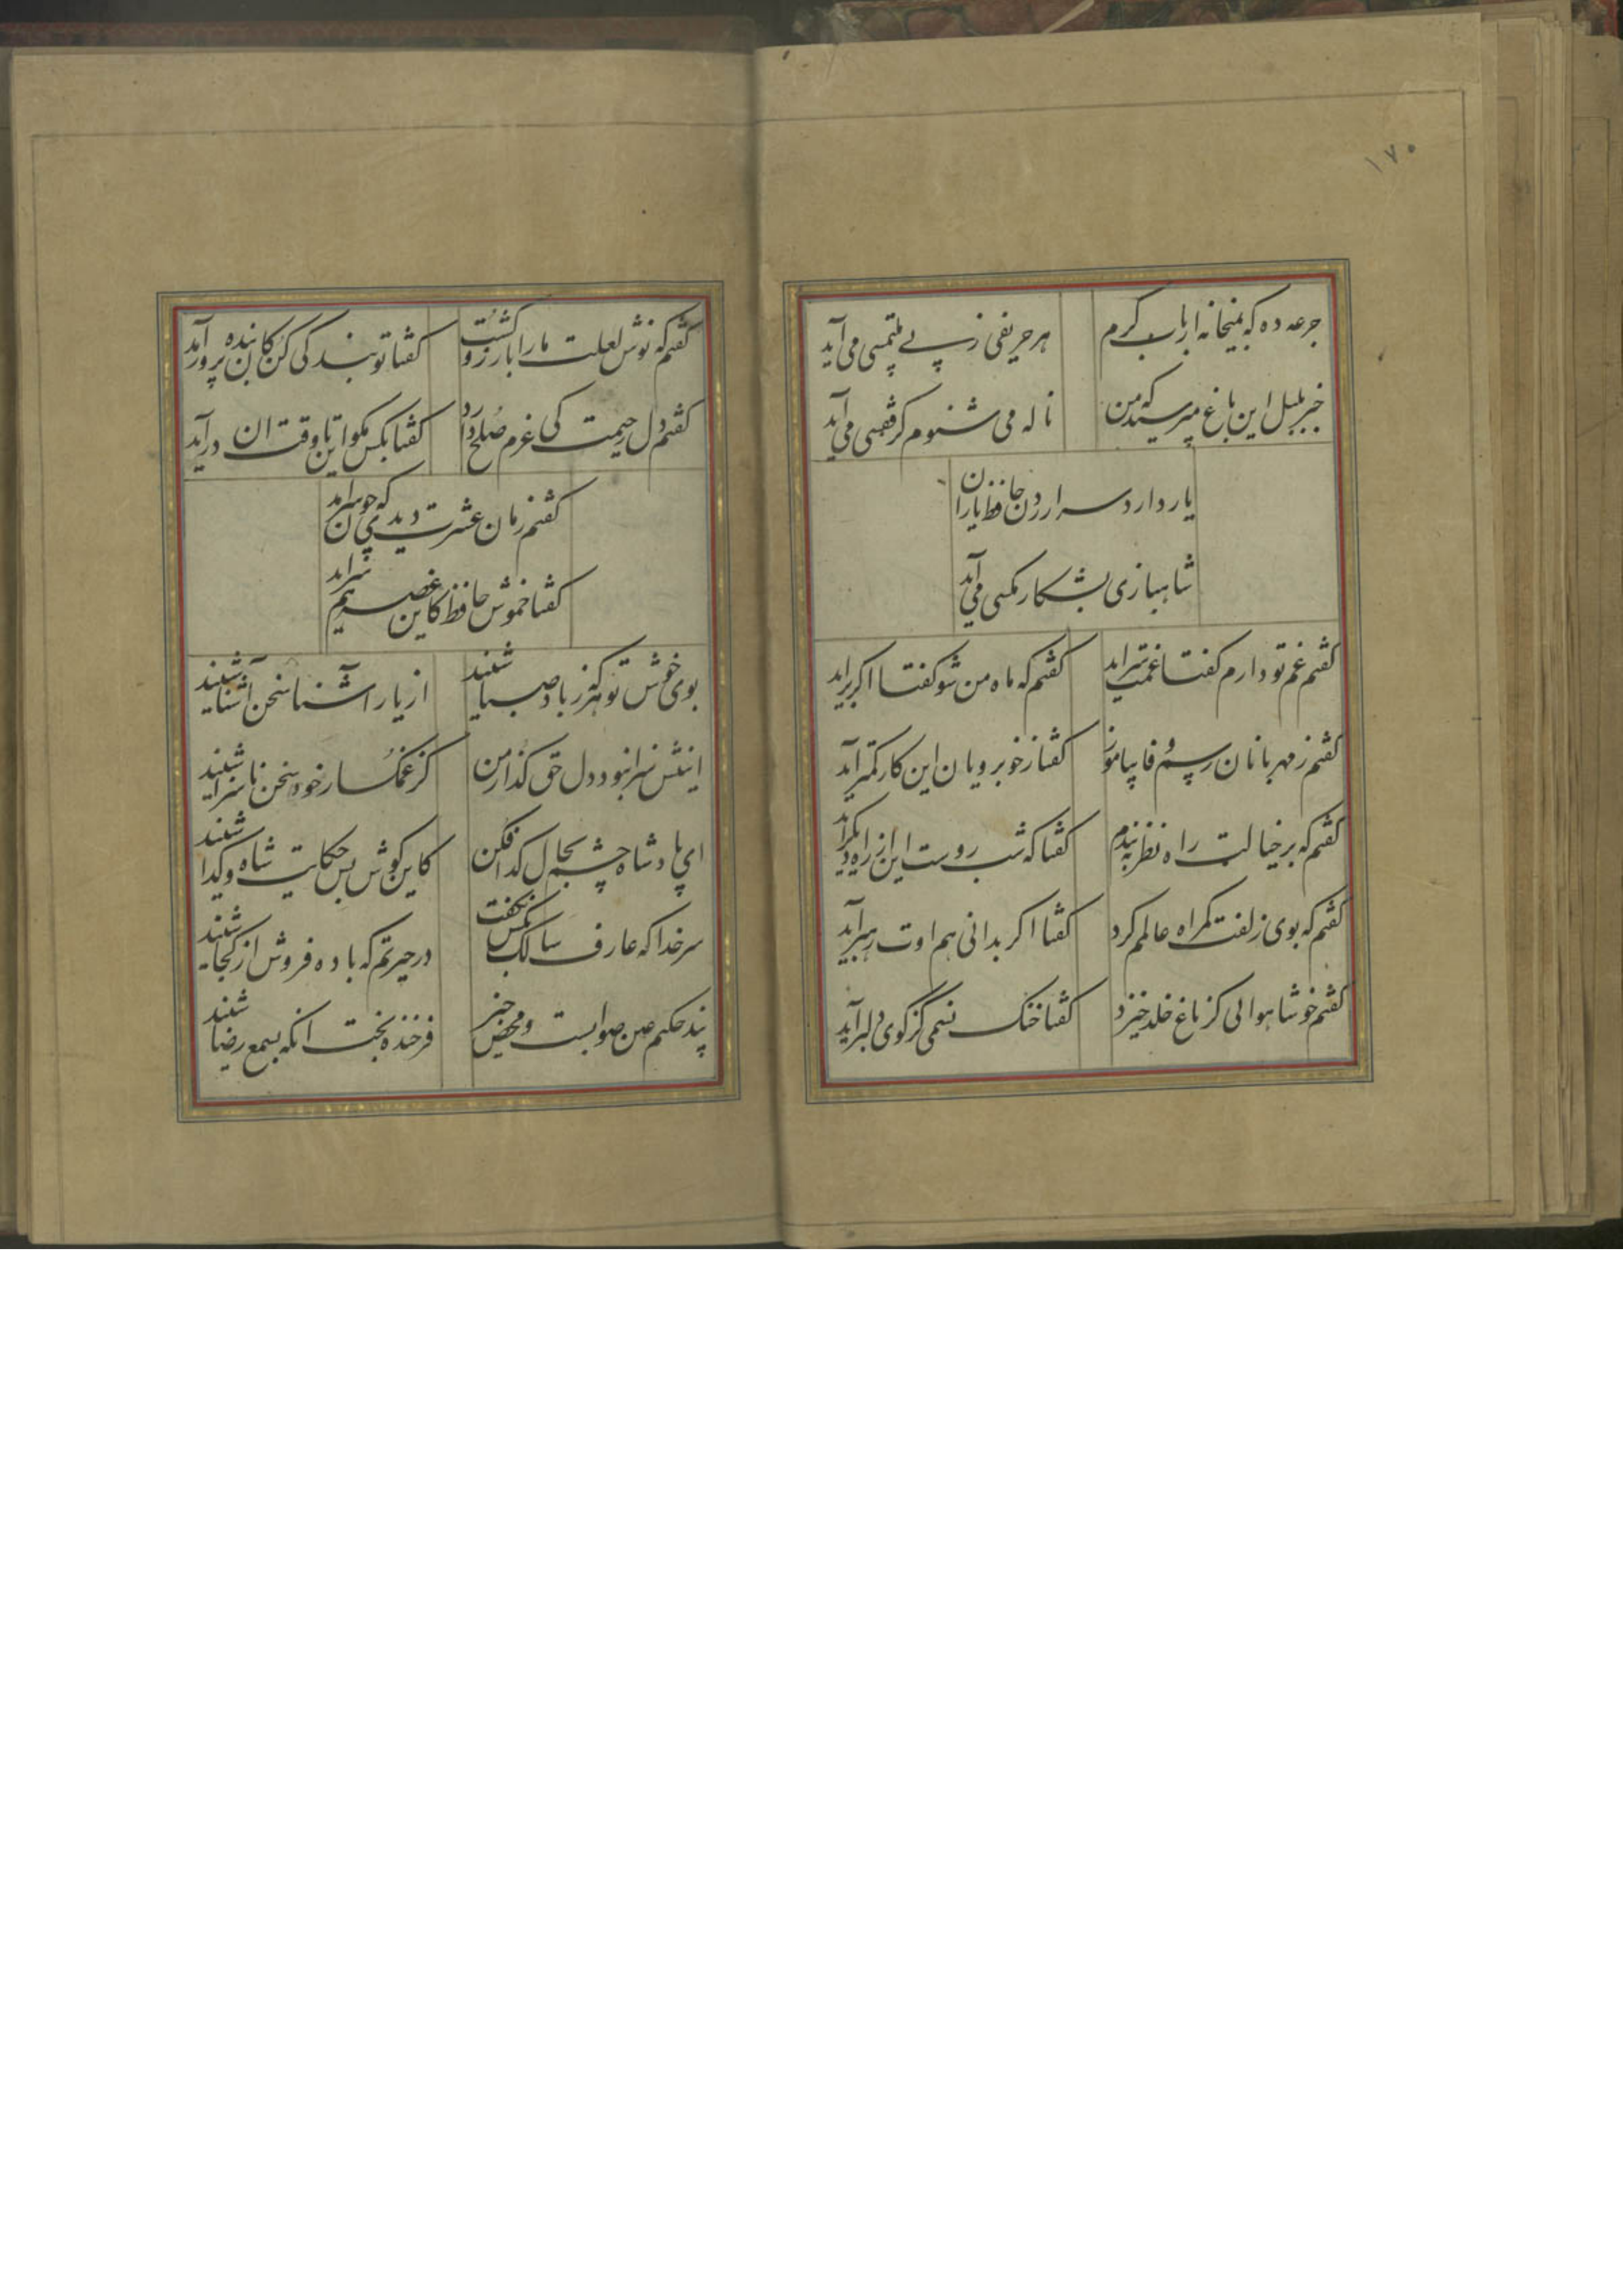 ۱۷۰
جرعه ده که بمیخانه ارباب کرم
هر حریفی ز پی ملتمسی می آید
خبر بلبل این باغ مپرسید که من
ناله می شنوم کز قفسی می آید
یار دارد سر ازردن حافظ یاران
شاهبازی بشکار مکسی می آید
کفتم غم تو دارم کفتا غمت سراید
کفتم که ماه من شو کفتا اکر براید
کفتم ز مهربانان رسم وفا بیاموز
کفتا ز خوبرویان این کار کمتر آید
کفتم که بر خیالت راه نظر ببندم
کفتا که شب روست این از راه دیکر آید
کفتم که بوی زلفت کمراه عالمم کرد
کفتا اکر بدانی هم اوت رهبر آید
کفتم خوشا هوائی کز باغ خلد خیزد
کفتا خنک نسیمی کز کوی دلبر آید
کفتم که نوش لعلت ما را بارزو کشت
کفتا تو بندکی کن کان بنده پرور آید
کفتم دل رحیمت کی عزم صلح دارد
کفتا بکس مکو این تا وقت ان درآید
کفتم زمان عشرت دیدی که چون سراید
کفتا خموش حافظ کاین غصه هم سراید
بوی خوش تو هر که ز باد صبا شنید
از یار آشنا سخن آشنا شنید
اینش سزا نبود دل حق کذار من
کز غمکسار خود سخن ناسزا شنید
ای پادشاه چشم بحال کدا فکن
کاین کوش بس حکایت شاه و کدا شنید
سر خدا که عارف سالک بکس نکفت
در حیرتم که باده فروش از کجا شنید
پند حکیم عین صوابست و محض خیر
فرخنده بخت انکه بسمع رضا شنید